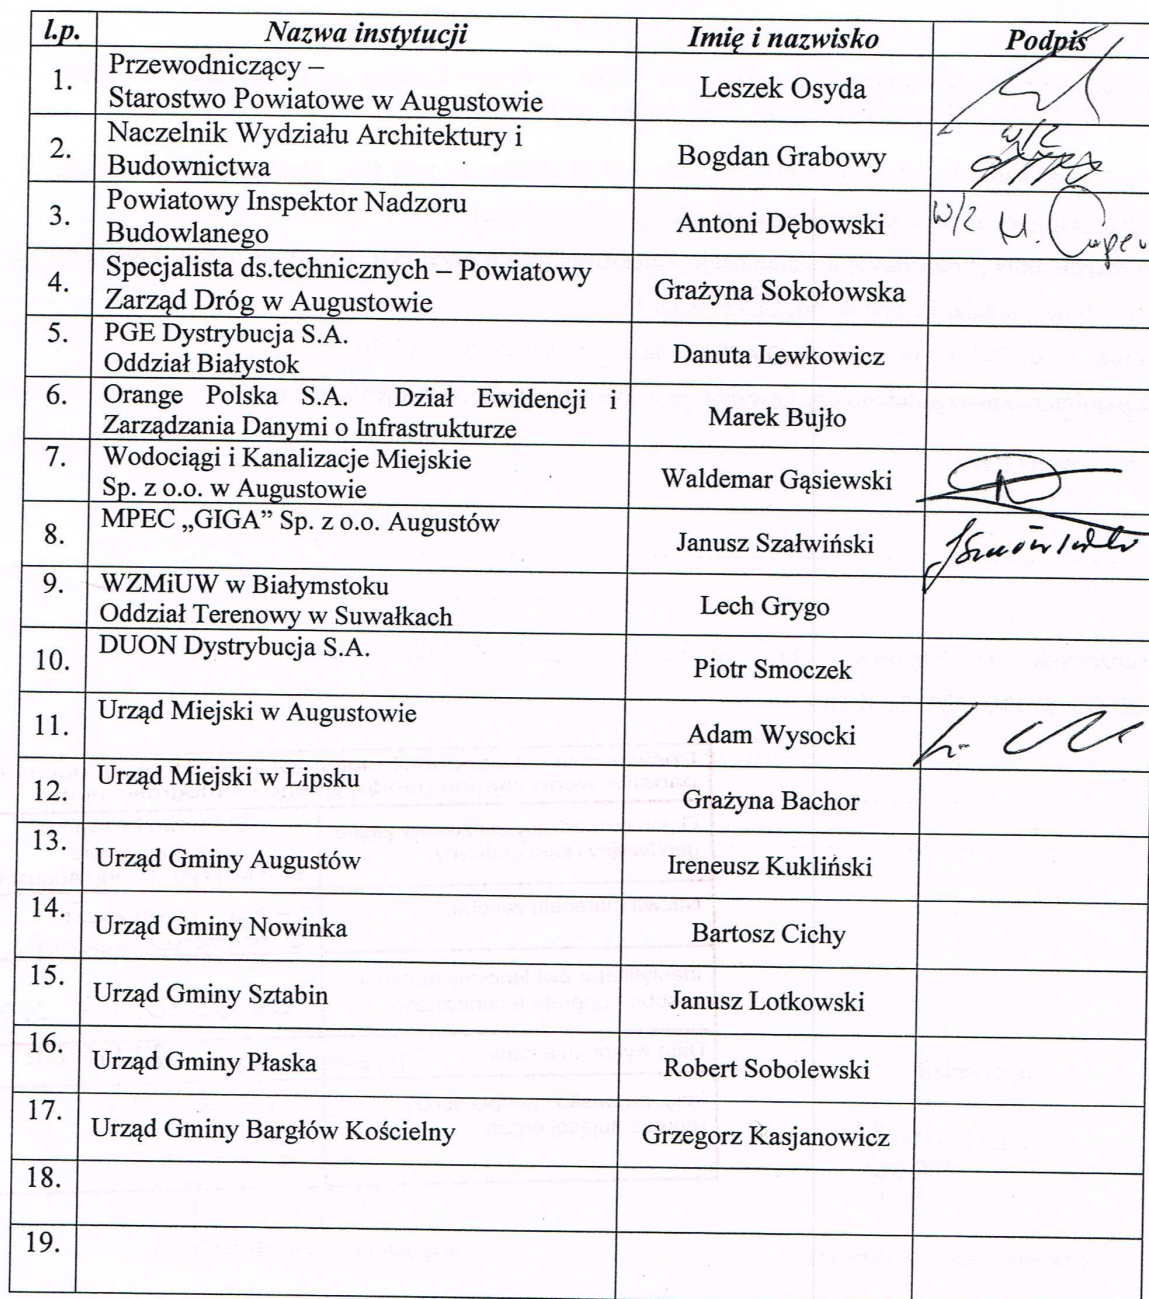 l.p. Nazwa instytucji Imię i nazwisko Podpis
1. Przewodniczący –
Starostwo Powiatowe w Augustowie Leszek Osyda
2. Naczelnik Wydziału Architektury i
Budownictwa Bogdan Grabowy w/z
3. Powiatowy Inspektor Nadzoru
Budowlanego Antoni Dębowski w/z M.
4. Specjalista ds.technicznych – Powiatowy
Zarząd Dróg w Augustowie Grażyna Sokołowska
5. PGE Dystrybucja S.A.
Oddział Białystok Danuta Lewkowicz
6. Orange Polska S.A. Dział Ewidencji i
Zarządzania Danymi o Infrastrukturze Marek Bujło
7. Wodociągi i Kanalizacje Miejskie
Sp. z o.o. w Augustowie Waldemar Gąsiewski
8. MPEC „GIGA” Sp. z o.o. Augustów Janusz Szałwiński
9. WZMiUW w Białymstoku
Oddział Terenowy w Suwałkach Lech Grygo
10. DUON Dystrybucja S.A. Piotr Smoczek
11. Urząd Miejski w Augustowie Adam Wysocki
12. Urząd Miejski w Lipsku Grażyna Bachor
13. Urząd Gminy Augustów Ireneusz Kukliński
14. Urząd Gminy Nowinka Bartosz Cichy
15. Urząd Gminy Sztabin Janusz Lotkowski
16. Urząd Gminy Płaska Robert Sobolewski
17. Urząd Gminy Bargłów Kościelny Grzegorz Kasjanowicz
18.
19.